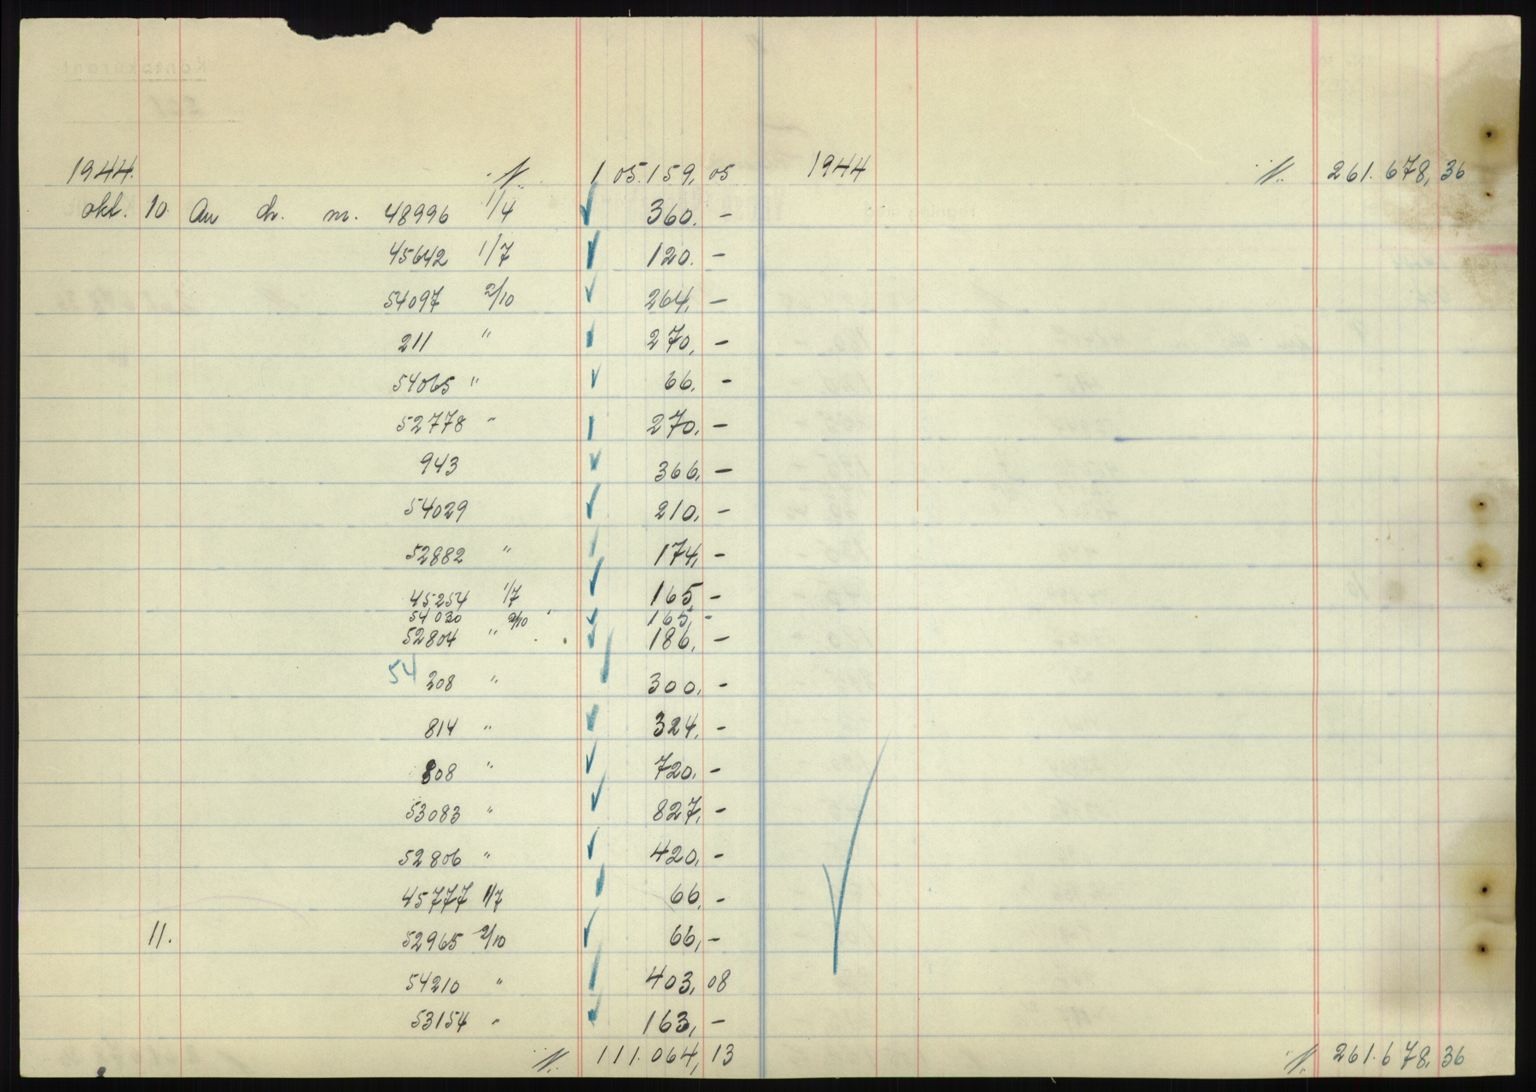 1944. 105.159,05 1944 261.678,36
okt. 10. An dr. nr. 48996 1/4 360.-
45642 1/7 120.-
54097 2/10 264,-
211 " 270,-
54065 " 66.-
52778 " 270,-
943 366,-
54029 210,-
52882 " 174,-
45254 1/7 165-
54030 2/10 165,-
52804 " 186,-
54 208 " 300,-
814 " 324,-
808 " 720.-
53083 " 827,-
52806 " 420,-
45777 1/7 66,-
11. 52965 2/10 66,-
54210 " 403,08
53154 " 163,-
111.064,13 261.678,36